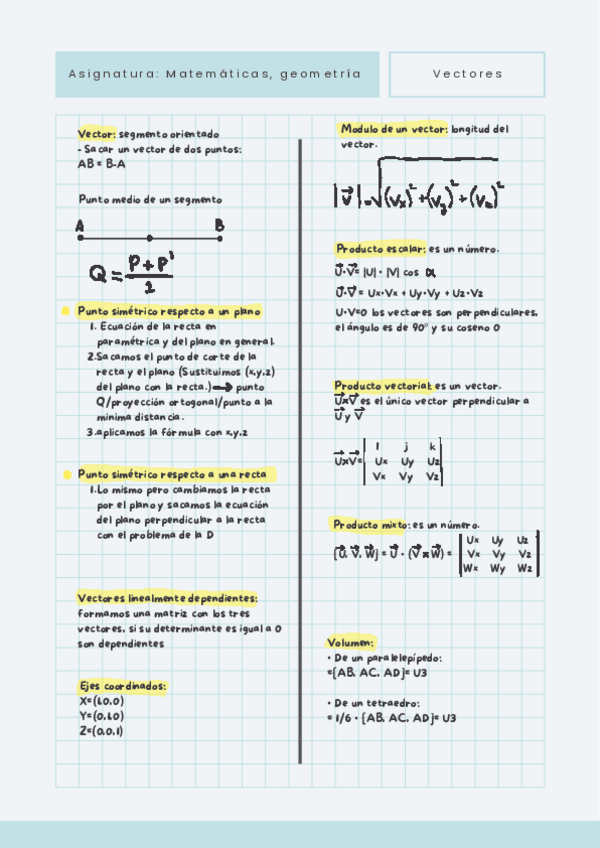 Asignatura: Matemáticas, geometría
Vectores
Vector: segmento orientado
- Sacar un vector de dos puntos:
AB = B-A
Punto medio de un segmento
A B
Q = P + P' / 2
Punto simétrico respecto a un plano
1. Ecuación de la recta en
paramétrica y del plano en general.
2.Sacamos el punto de corte de la
recta y el plano (Sustituimos (x,y,z)
del plano con la recta.)→ punto
Q/proyección ortogonal/punto a la
mínima distancia.
3.aplicamos la fórmula con x,y,z
Punto simétrico respecto a una recta
1.Lo mismo pero cambiamos la recta
por el plano y sacamos la ecuación
del plano perpendicular a la recta
con el problema de la D
Vectores linealmente dependientes:
Formamos una matriz con los tres
vectores, si su determinante es igual a 0
son dependientes
Ejes coordinados:
X=(1,0,0)
Y=(0,1,0)
Z=(0,0,1)
Modulo de un vector: longitud del
vector.
|v⃗| = √(Vx)² + (Vy)² + (Vz)²
Producto escalar: es un número.
U⃗·V⃗= |U| · |V| cos α
U⃗·V⃗ = Ux·Vx + Uy·Vy + Uz·Vz
U·V=0 los vectores son perpendiculares,
el ángulo es de 90º y su coseno 0
Producto vectorial: es un vector.
U⃗xV⃗ es el único vector perpendicular a
U⃗ y V⃗
I j k
U⃗xV⃗= Ux Uy Uz
Vx Vy Vz
Producto mixto: es un número.
Ux Uy Uz
[U⃗, V⃗, W⃗] = U⃗ · (V⃗ x W⃗) = Vx Vy Vz
Wx Wy Wz
Volumen:
• De un paralelepípedo:
=[AB, AC, AD]= U3
• De un tetraedro:
= 1/6 · [AB, AC, AD]= U3